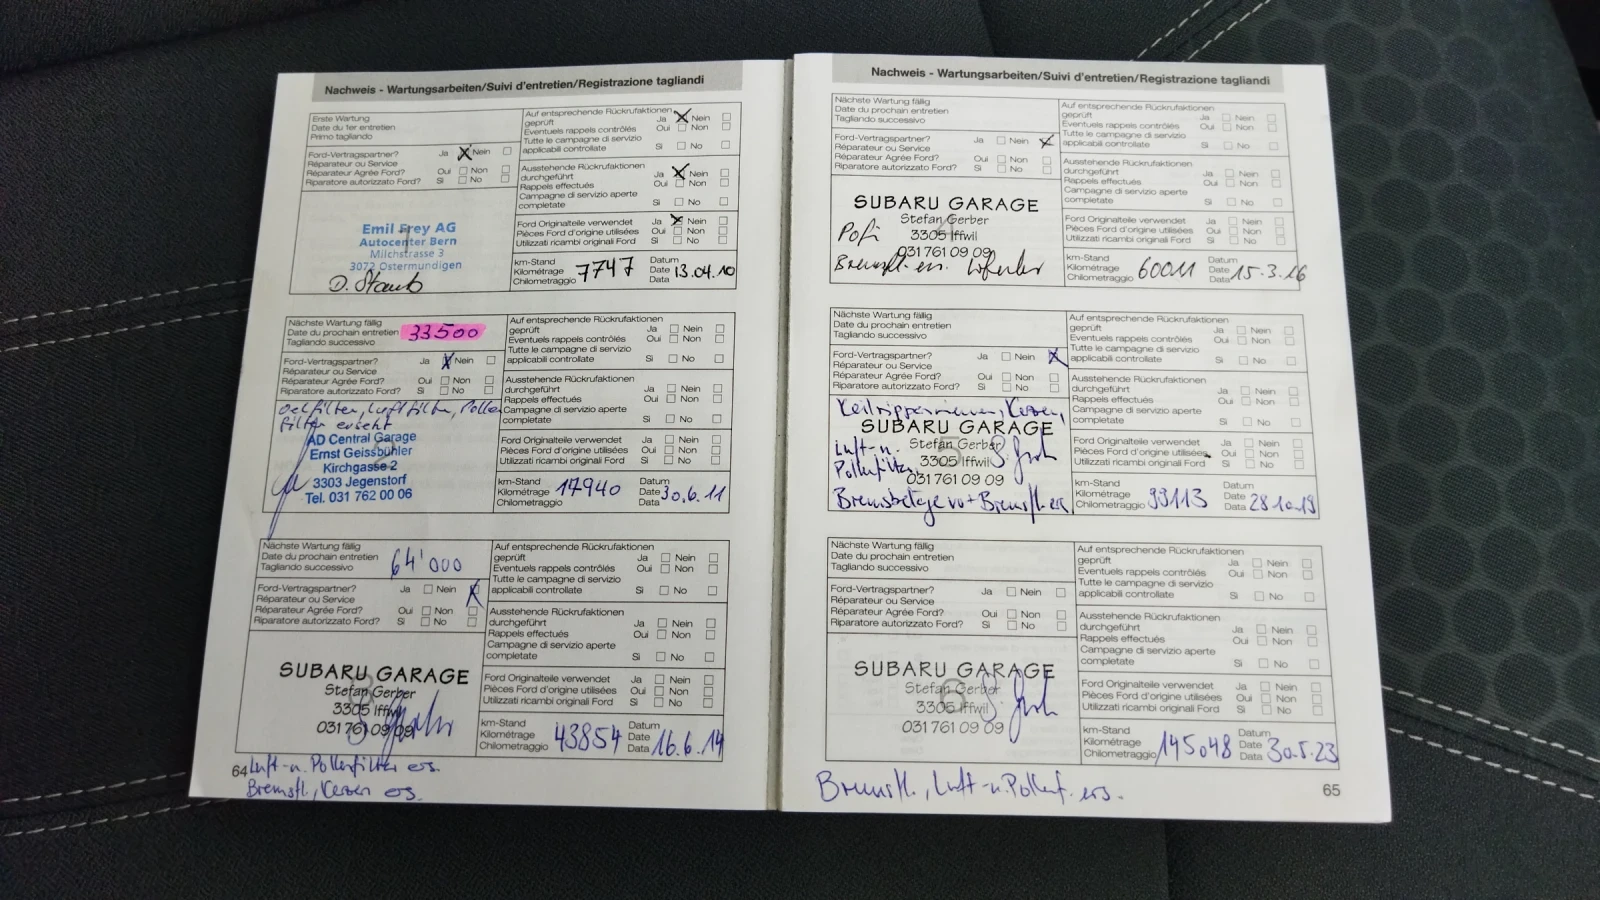 Nachweis - Wartungsarbeiten/Suivi d'entretien/Registrazione tagliandi
Erste Wartung
Date du 1er entretien
Primo tagliando
Ford-Vertragspartner? Ja Nein
Réparateur ou Service
Réparateur Agrée Ford? Oui Non
Riparatore autorizzato Ford? Si No
Emil Frey AG
Autocenter Bern
Milchstrasse 3
3072 Ostermundigen
D. Staub
Auf entsprechende Rückrufaktionen
geprüft Ja Nein
Eventuels rappels contrôlés Oui Non
Tutte le campagne di servizio
applicabili controllate Si No
Ausstehende Rückrufaktionen
durchgeführt Ja Nein
Rappels effectués Oui Non
Campagne di servizio aperte
completate Si No
Ford Originalteile verwendet Ja Nein
Pièces Ford d'origine utilisées Oui Non
Utilizzati ricambi originali Ford Si No
km-Stand Datum
Kilométrage 7747 Date 13.04.10
Chilometraggio Data
Nächste Wartung fällig
Date du prochain entretien 33500
Tagliando successivo
Ford-Vertragspartner? Ja Nein
Réparateur ou Service
Réparateur Agrée Ford? Oui Non
Riparatore autorizzato Ford? Si No
Oelfilter, Luftfilter, Pollen
filter ersetzt
AD Central Garage
Ernst Geissbühler
Kirchgasse 2
3303 Jegenstorf
Tel. 031 762 00 06
2
Auf entsprechende Rückrufaktionen
geprüft Ja Nein
Eventuels rappels contrôlés Oui Non
Tutte le campagne di servizio
applicabili controllate Si No
Ausstehende Rückrufaktionen
durchgeführt Ja Nein
Rappels effectués Oui Non
Campagne di servizio aperte
completate Si No
Ford Originalteile verwendet Ja Nein
Pièces Ford d'origine utilisées Oui Non
Utilizzati ricambi originali Ford Si No
km-Stand Datum
Kilométrage 17940 Date 30.6.11
Chilometraggio Data
Nächste Wartung fällig
Date du prochain entretien 64'000
Tagliando successivo
Ford-Vertragspartner? Ja Nein
Réparateur ou Service
Réparateur Agrée Ford? Oui Non
Riparatore autorizzato Ford? Si No
SUBARU GARAGE
Stefan Gerber
3305 Iffwil
031 761 09 09
Auf entsprechende Rückrufaktionen
geprüft Ja Nein
Eventuels rappels contrôlés Oui Non
Tutte le campagne di servizio
applicabili controllate Si No
Ausstehende Rückrufaktionen
durchgeführt Ja Nein
Rappels effectués Oui Non
Campagne di servizio aperte
completate Si No
Ford Originalteile verwendet Ja Nein
Pièces Ford d'origine utilisées Oui Non
Utilizzati ricambi originali Ford Si No
km-Stand Datum
Kilométrage 43854 Date 16.6.14
Chilometraggio Data
64 Luft-u. Pollenfilter ers.
Bremsfl., Kerzen ers.
Nachweis - Wartungsarbeiten/Suivi d'entretien/Registrazione tagliandi
Nächste Wartung fällig
Date du prochain entretien
Tagliando successivo
Ford-Vertragspartner? Ja Nein
Réparateur ou Service
Réparateur Agrée Ford? Oui Non
Riparatore autorizzato Ford? Si No
SUBARU GARAGE
Stefan Gerber
3305 Iffwil
031 761 09 09
Bremsfl. ers.
Auf entsprechende Rückrufaktionen
geprüft Ja Nein
Eventuels rappels contrôlés Oui Non
Tutte le campagne di servizio
applicabili controllate Si No
Ausstehende Rückrufaktionen
durchgeführt Ja Nein
Rappels effectués Oui Non
Campagne di servizio aperte
completate Si No
Ford Originalteile verwendet Ja Nein
Pièces Ford d'origine utilisées Oui Non
Utilizzati ricambi originali Ford Si No
km-Stand Datum
Kilométrage 60011 Date 15.3.16
Chilometraggio Data
Nächste Wartung fällig
Date du prochain entretien
Tagliando successivo
Ford-Vertragspartner? Ja Nein
Réparateur ou Service
Réparateur Agrée Ford? Oui Non
Riparatore autorizzato Ford? Si No
Keilrippenriemen, Kerzen,
SUBARU GARAGE
Luft-u. Stefan Gerber
Pollenfilter, 3305 Iffwil
031 761 09 09
Bremsbeläge vo + Bremsfl. ers
5
Auf entsprechende Rückrufaktionen
geprüft Ja Nein
Eventuels rappels contrôlés Oui Non
Tutte le campagne di servizio
applicabili controllate Si No
Ausstehende Rückrufaktionen
durchgeführt Ja Nein
Rappels effectués Oui Non
Campagne di servizio aperte
completate Si No
Ford Originalteile verwendet Ja Nein
Pièces Ford d'origine utilisées Oui Non
Utilizzati ricambi originali Ford Si No
km-Stand Datum
Kilométrage 99113 Date 28.10.19
Chilometraggio Data
Nächste Wartung fällig
Date du prochain entretien
Tagliando successivo
Ford-Vertragspartner? Ja Nein
Réparateur ou Service
Réparateur Agrée Ford? Oui Non
Riparatore autorizzato Ford? Si No
SUBARU GARAGE
Stefan Gerber
3305 Iffwil
031 761 09 09
6
Auf entsprechende Rückrufaktionen
geprüft Ja Nein
Eventuels rappels contrôlés Oui Non
Tutte le campagne di servizio
applicabili controllate Si No
Ausstehende Rückrufaktionen
durchgeführt Ja Nein
Rappels effectués Oui Non
Campagne di servizio aperte
completate Si No
Ford Originalteile verwendet Ja Nein
Pièces Ford d'origine utilisées Oui Non
Utilizzati ricambi originali Ford Si No
km-Stand Datum
Kilométrage 145048 Date 30.5.23
Chilometraggio Data
Bremsfl., Luft-u. Pollenf. ers.
65